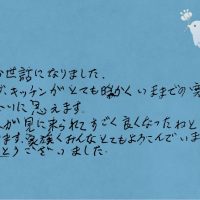 お世話になりました。
、キッチンがとても暖かくいままでの寒
いに思えます。
が見に来られてすごく良くなったねと
ます。家族みんなとてもよろこんでいま
とうございました。